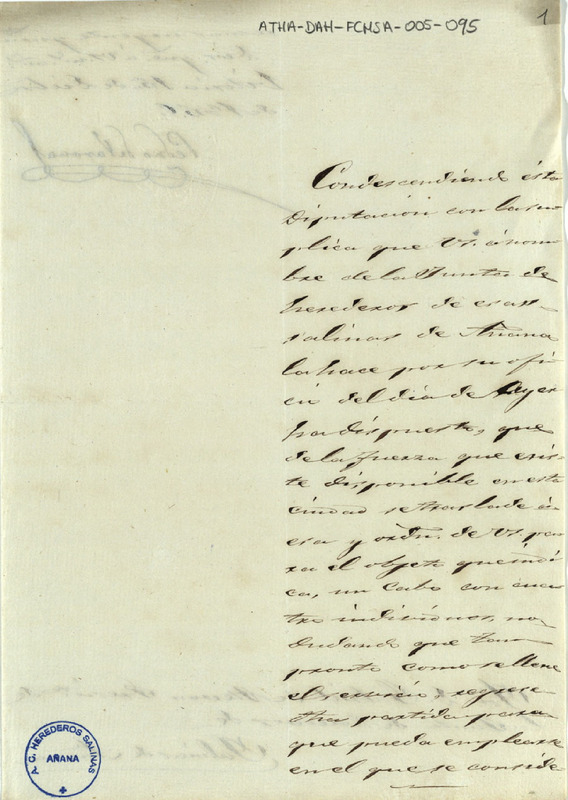 ATHA-DAH-FCHSA-005-095
1
Condescendiendo ésta
Diputación con la su
plica que VS. á nom
bre de la Junta de
herederos de esas
salinas de Añana
la hace por su ofi
cio del dia de Ayer
ha dispuesto, que
de la fuerza que exis
te disponible en esta
ciudad se traslade á
esa y ordn. de VS. pa
ra el objeto que indi
ca, un cabo con cua
tro individuos, no
dudando que tan
pronto como se llene
el servicio regrese
dha partida para
que pueda emplearse
en el que se conside
A. C. HEREDEROS SALINAS
AÑANA